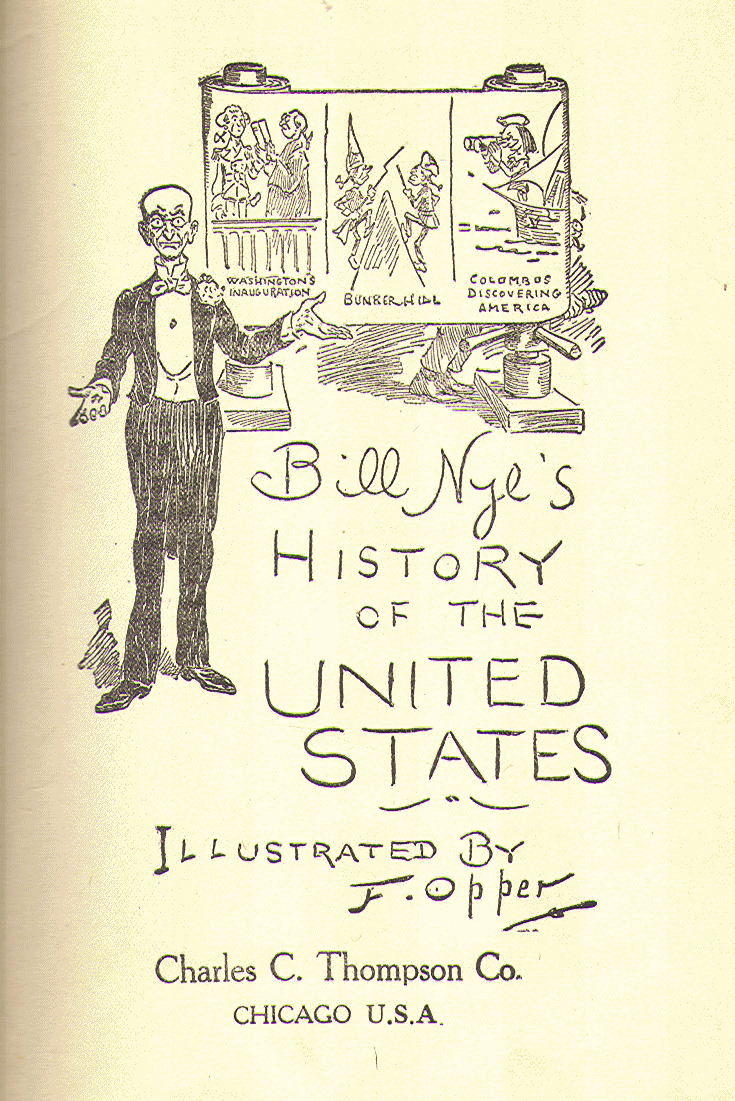 WASHINGTON'S
INAUGURATION
BUNKER HILL
COLOMBOS
DISCOVERING
AMERICA
Bill Nye's
HISTORY
OF THE
UNITED
STATES
ILLUSTRATED BY
F. Opper
Charles C. Thompson Co.
CHICAGO U.S.A.